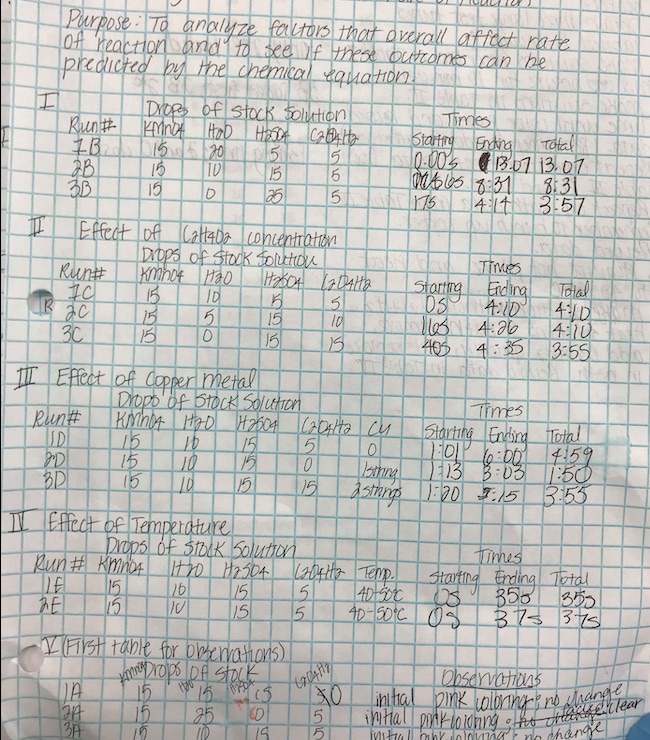 Purpose: To analyze factors that overall affect rate
of reaction and to see if these outcomes can be
predicted by the chemical equation.
I
Drops of Stock Solution Times
Run# KMnO4 H2O H2SO4 C2O4H2 Starting Ending Total
1B 15 20 5 5 0.00s 13.07 13.07
2B 15 10 15 5 8:31 8:31
3B 15 0 25 5 17s 4:14 3:57
II Effect of C2H4O2 concentration
Drops of Stock Solution Times
Run# KMnO4 H2O H2SO4 C2O4H2 Starting Ending Total
1C 15 10 5 5 0s 4:10 4:10
R 2C 15 5 15 10 16s 4:26 4:10
3C 15 0 15 15 40s 4:35 3:55
III Effect of Copper Metal
Drops of Stock Solution Times
Run# KMnO4 H2O H2SO4 C2O4H2 Cu Starting Ending Total
1D 15 10 15 5 0 1:01 6:00 4:59
2D 15 10 15 0 1string 1:13 3:03 1:50
3D 15 10 15 15 2strings 1:20 :15 3:55
IV Effect of Temperature
Drops of Stock Solution Times
Run# KMnO4 H2O H2SO4 C2O4H2 Temp. Starting Ending Total
1E 15 10 15 5 40-50°C 0s 35s 35s
2E 15 10 15 5 40-50°C 0s 37s 37s
V (First table for observations)
KMnO4 Drops of Stock H2O C2O4H2 Observations
1A 15 15 15 0 initial pink coloring; no change
2A 15 25 0 5 initial pink coloring; no change clear
3A 15 10 15 5 initial pink coloring; no change